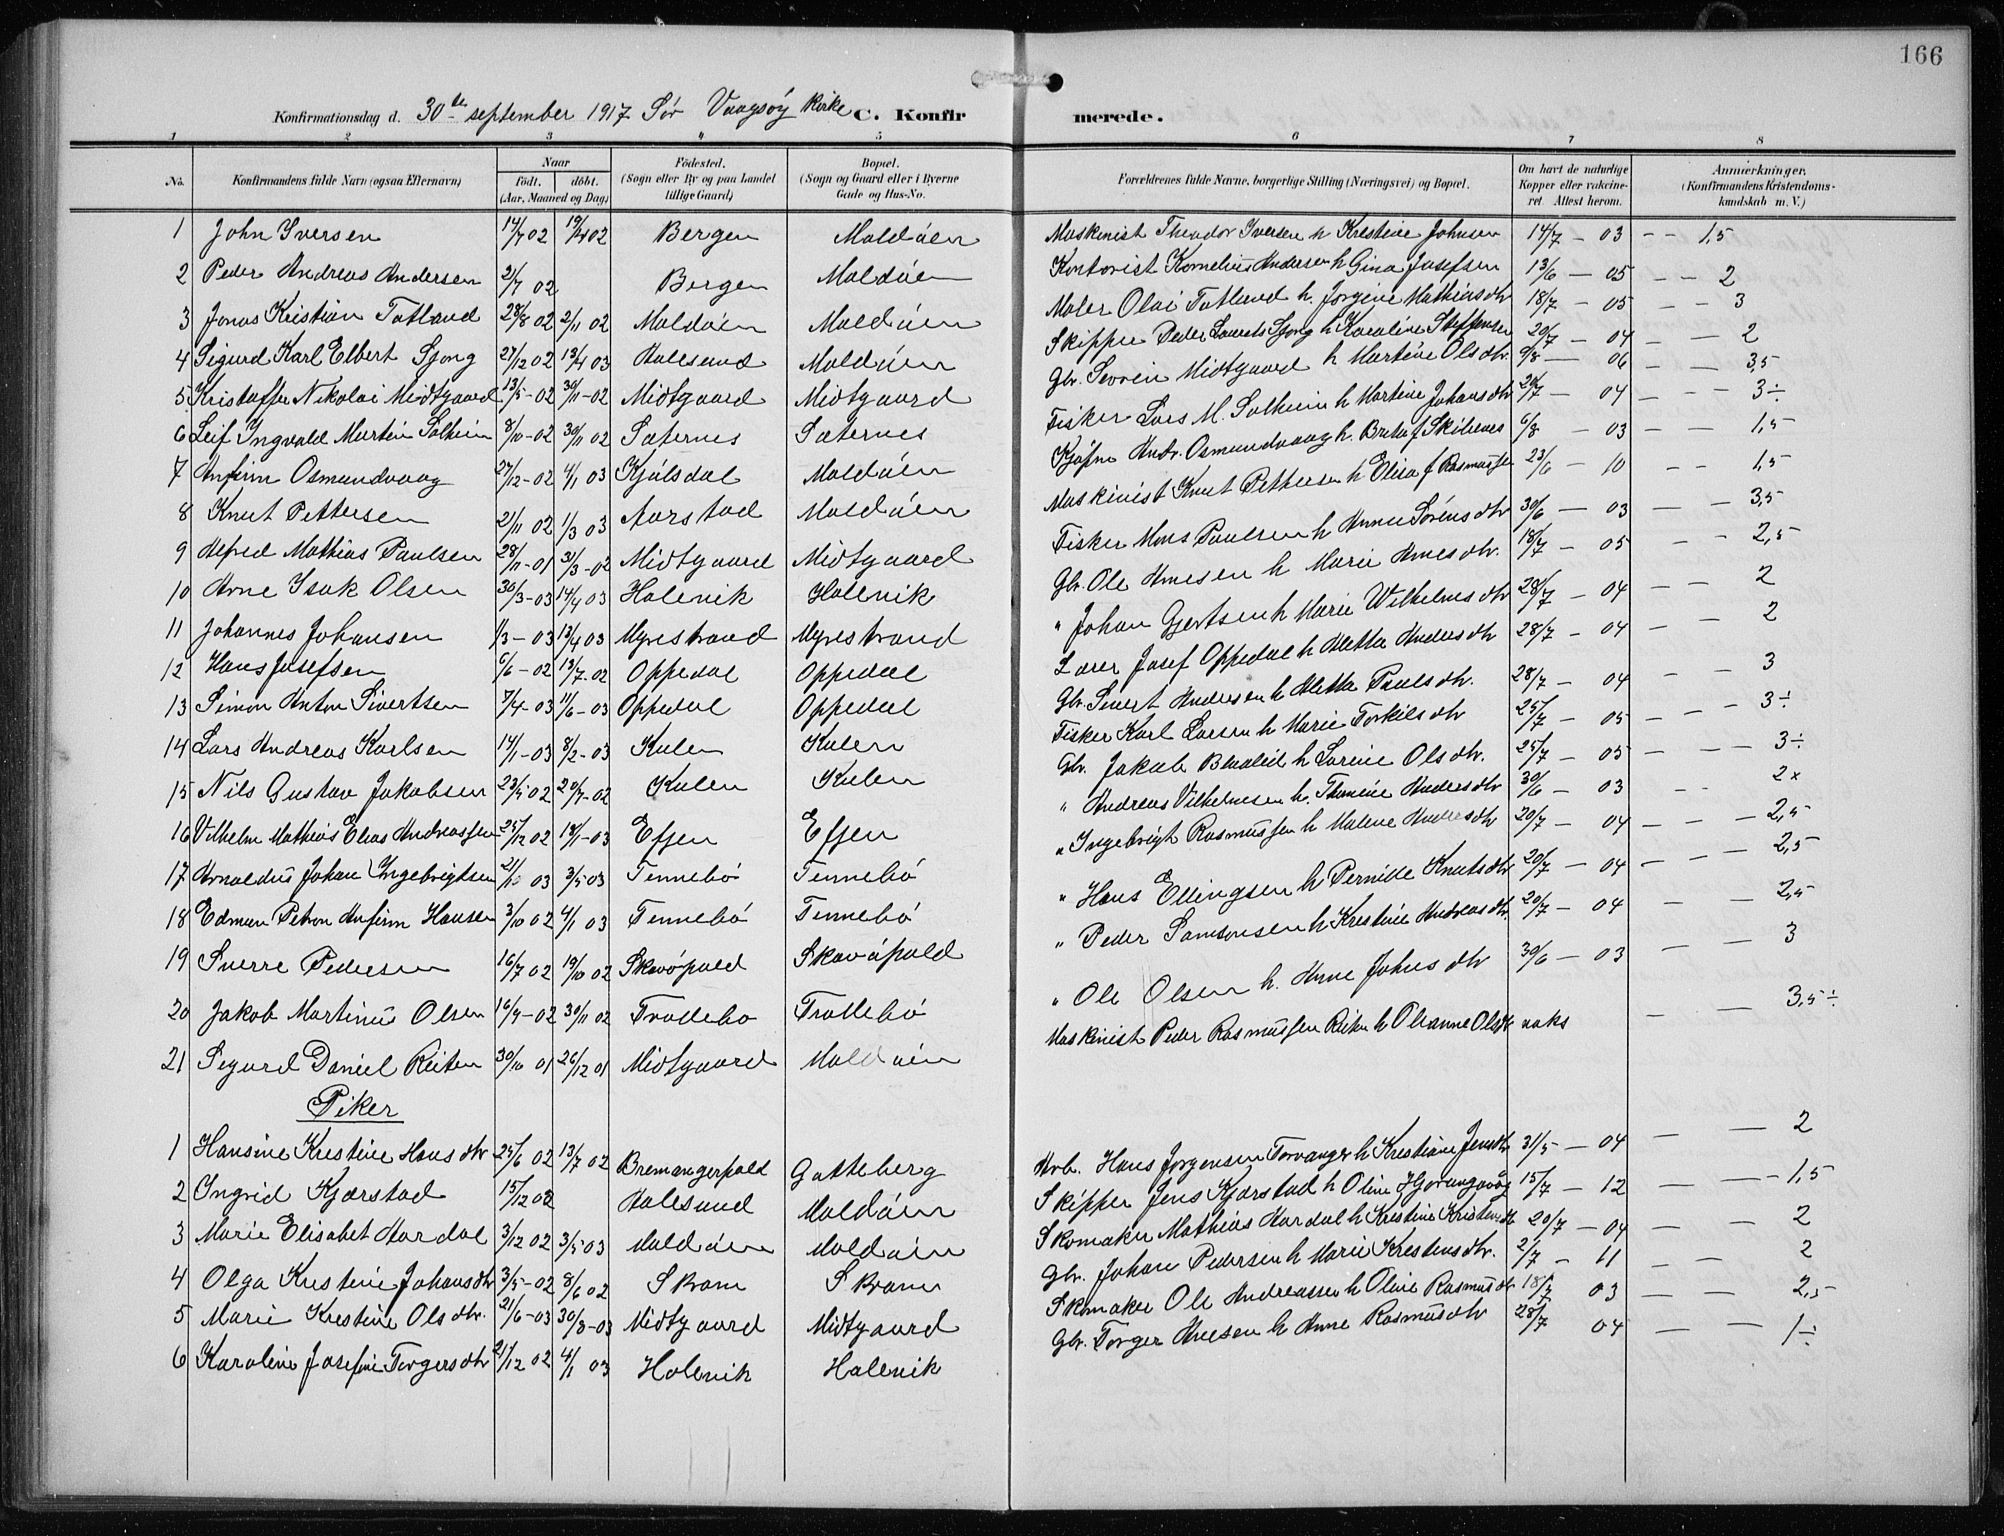 166
Konfirmationsdag d. 30te september 1917 Sör Vaagsöy Kirke C. Konfirmerede.
1 2 3 4 5 6 7 8
No. Konfirmandens fulde Navn (ogsaa Efternavn) Naar födt. döbt. (Aar, Maaned og Dag) Födested. (Sogn eller By og paa Landet tillige Gaard) Bopæl. (Sogn og Gaard eller i Byerne Gade og Hus-No. Forældrenes fulde Navne, borgerlige Stilling (Næringsvei) og Bopæl. Om havt de naturlige Kopper eller vakcineret Attest herom. Anmærkninger. (Konfirmandens Kristendomskundskab m. V.)
1 John Iversen 14/7 02 19/ 02 Bergen Maldöen Maskinist Theodor Iversen h Kristine Johnsen 14/7 — 03 — — 1,5
2 Peder Andreas Andersen 21/7 02 Bergen Maldöen Kontorist Kornelius Andersen h Gina Josefsen 13/6 — 05 — — 2
3 Jonas Kristian Totland 28/8 02 2/11 02 Maldöen Maldöen Maler Olai Totland h. Jorgine Mathias dtr 18/7 — 05 — — 3
4 Sigurd Karl Elbert Sjong 27/12 02 13/4 03 Aalesund Maldöen Skipper Peder Laurits Sjong h Karoline Steffensen 20/7 — 04 — — 2
5 Kristoffer Nikolai Midtgaard 13/5 — 02 30/11 — 02 Midtgaard Midtgaard Gbr. Severin Midtgaard h Martine Ols dtr. 9/8 — 06 — — 3,5
6 Leif Ingvald Martin Solheim 8/10 — 02 30/11 02 Sæternes Sæternes Fisker Lars M. Solheim h Martine Johans dtr 20/7 — 04 — — 3÷
7 Anfinn Osmundvaag 27/12 — 02 4/1 03 Kjölsdal Maldöen Kjöpm Andr. Osmundvaag h. Brita f Skibenes 6/8 — 03 — — 1,5
8 Knut Pettersen 21/11 02 1/3 03 Aarstad Maldöen Maskinist Knut Pettersen h Elisa f Rasmussen 23/6 — 10 — — 1,5
9 Alfred Mathias Paulsen 28/11 — 01 31/3 — 02 Midtgaard Midtgaard Fisker Mons Paulsen h Anne Sörens dtr 30/6 — 03 — — 3,5
10 Arne Isak Olsen 30/3 — 03 14/4 03 Holevik Holevik Gbr. Ole Arnesen h Marie Arnes dtr. 18/7 — 05 — — 2,5
11 Johannes Johansen 1/3 — 03 13/4 03 Myrestrand Myrestrand " Johan Gjertsen h Marie Wilhelms dtr 28/7 — 04 — — 2
12 Hans Josefsen 6/6 — 02 13/7 — 02 Oppedal Oppedal Lærer Josef Oppedal h Aletta Anders dtr 28/7 — 04 — — 2
13 Simon Anton Sivertsen 7/4 — 03 11/6 — 03 Oppedal Oppedal Gbr. Sivert Andersen h Aletta Pauls dtr. 28/7 — 04 — — 3
14 Lars Andreas Karlsen 14/1 — 03 8/2 — 03 Kulen Kulen Fisker Karl Larsen h Marie Torkils dtr 25/7 — 05 — — 3÷
15 Nils Gustav Jakobsen 23/5 02 20/7 — 02 Kulen Kulen Gbr. Jakob h Sorine Ols dtr. 25/7 — 05 — — 3÷
16 Vilhelm Mathias Elias Andreassen 25/12 02 18/1 — 03 Efjen Efjen " Andreas Vilhelmsen h. Thomine Anders dtr 30/6 — 03 - - 2x
17 Arnoldus Johan Ingebrigtsen 03 3/5 03 Tennebö Tennebö " Ingebrigt Rasmussen h Malene Anders dtr 20/7 — 04 — — 2,5
18 Edman Petron Anfinn Hansen 3/10 02 4/1 03 Tennebö Tennebö " Hans Ellingsen h Pernille Knuts dtr 20/7 — 04 — — 2,5
19 Sverre Pedersen 16/7 02 19/10 02 Skavöpold Skavöpold " Peder Samsonsen h Kristine Andreas dtr. 20/7 — 04 — — 2,5
20 Jakob Martinus Olsen 16/9 — 02 30/11 02 Trollebö Trollebö " Ole Olsen h. Anne Johns dtr 30/6 — 03 — — 3
21 Sigurd Daniel Reiten 30/10 01 26/12 01 Midtgaard Maldöen Maskinist Peder Rasmussen Reiten h Olianne Ols dtr vaks — — 3,5÷
Piker
1 Hansine Kristine Hans dtr 25/6 02 13/7 02 Bremangerpold Gatteberg Arb. Hans Jorgensen Torvanger h Kristiane Jens dtr 31/5 — 04 — — 2
2 Ingrid Kjærstad 15/12 02 Aalesund Maldöen Skipper Jens Kjærstad h Oline Hjorungavåg 15/7 — 12 — — 1,5
3 Marie Elisabet Hardal 3/12 02 3/5 03 Maldöen Maldöen Skomaker Mathias Hardal h Kristine Kristens dtr 20/7 — 04 — — 2
4 Olga Kristine Johans dtr 3/5 — 02 8/6 02 Skram Skram Gbr. Johan Pedersen h Marie Kristens dtr. 2/7 — 11 — — 2
5 Marie Kristine Ols dtr. 21/6 — 03 30/8 — 03 Midtgaard Midtgaard Skomaker Ole Andreassen h Oline Rasmus dtr 18/7 03 — — 2,5
6 Karoline Josefine Torgers dtr 21/12 02 4/1 03 Holevik Holevik Gbr. Torger Anesen h Anne Rasmus dtr 28/7 04 — — 1÷